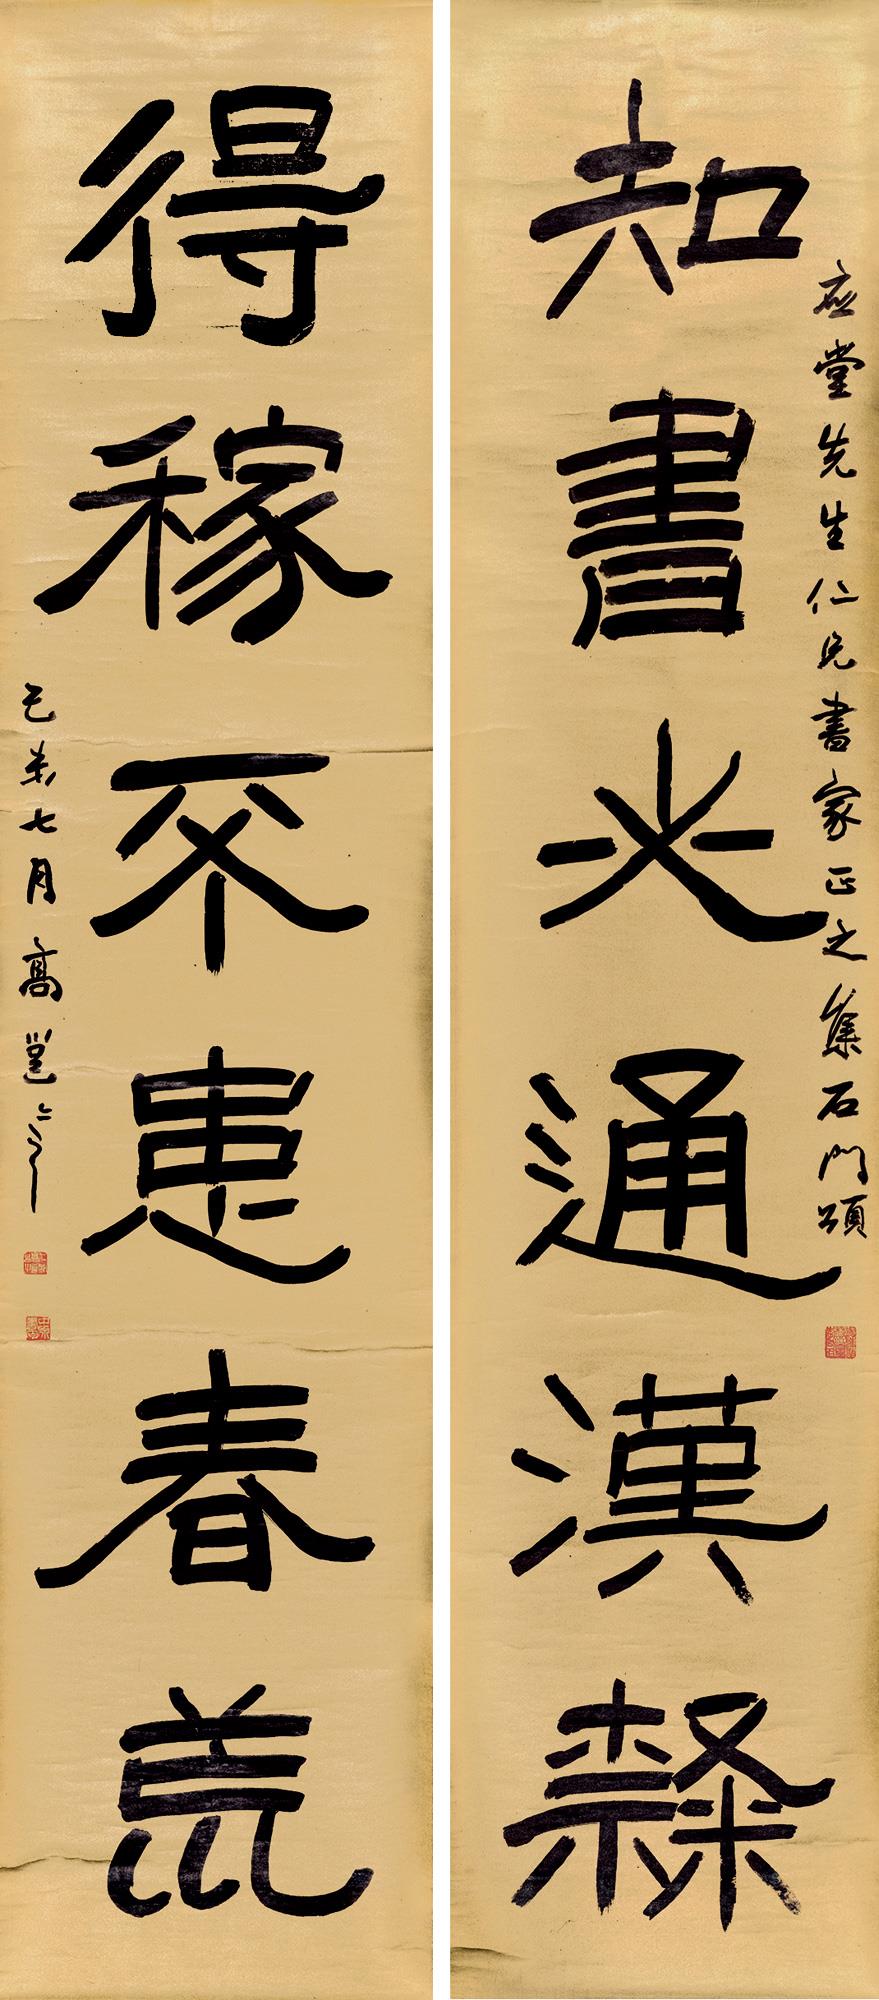 應堂先生仁兄書家正之集石門頌
知書必通漢隸
得稼不患春荒
己未七月高邕